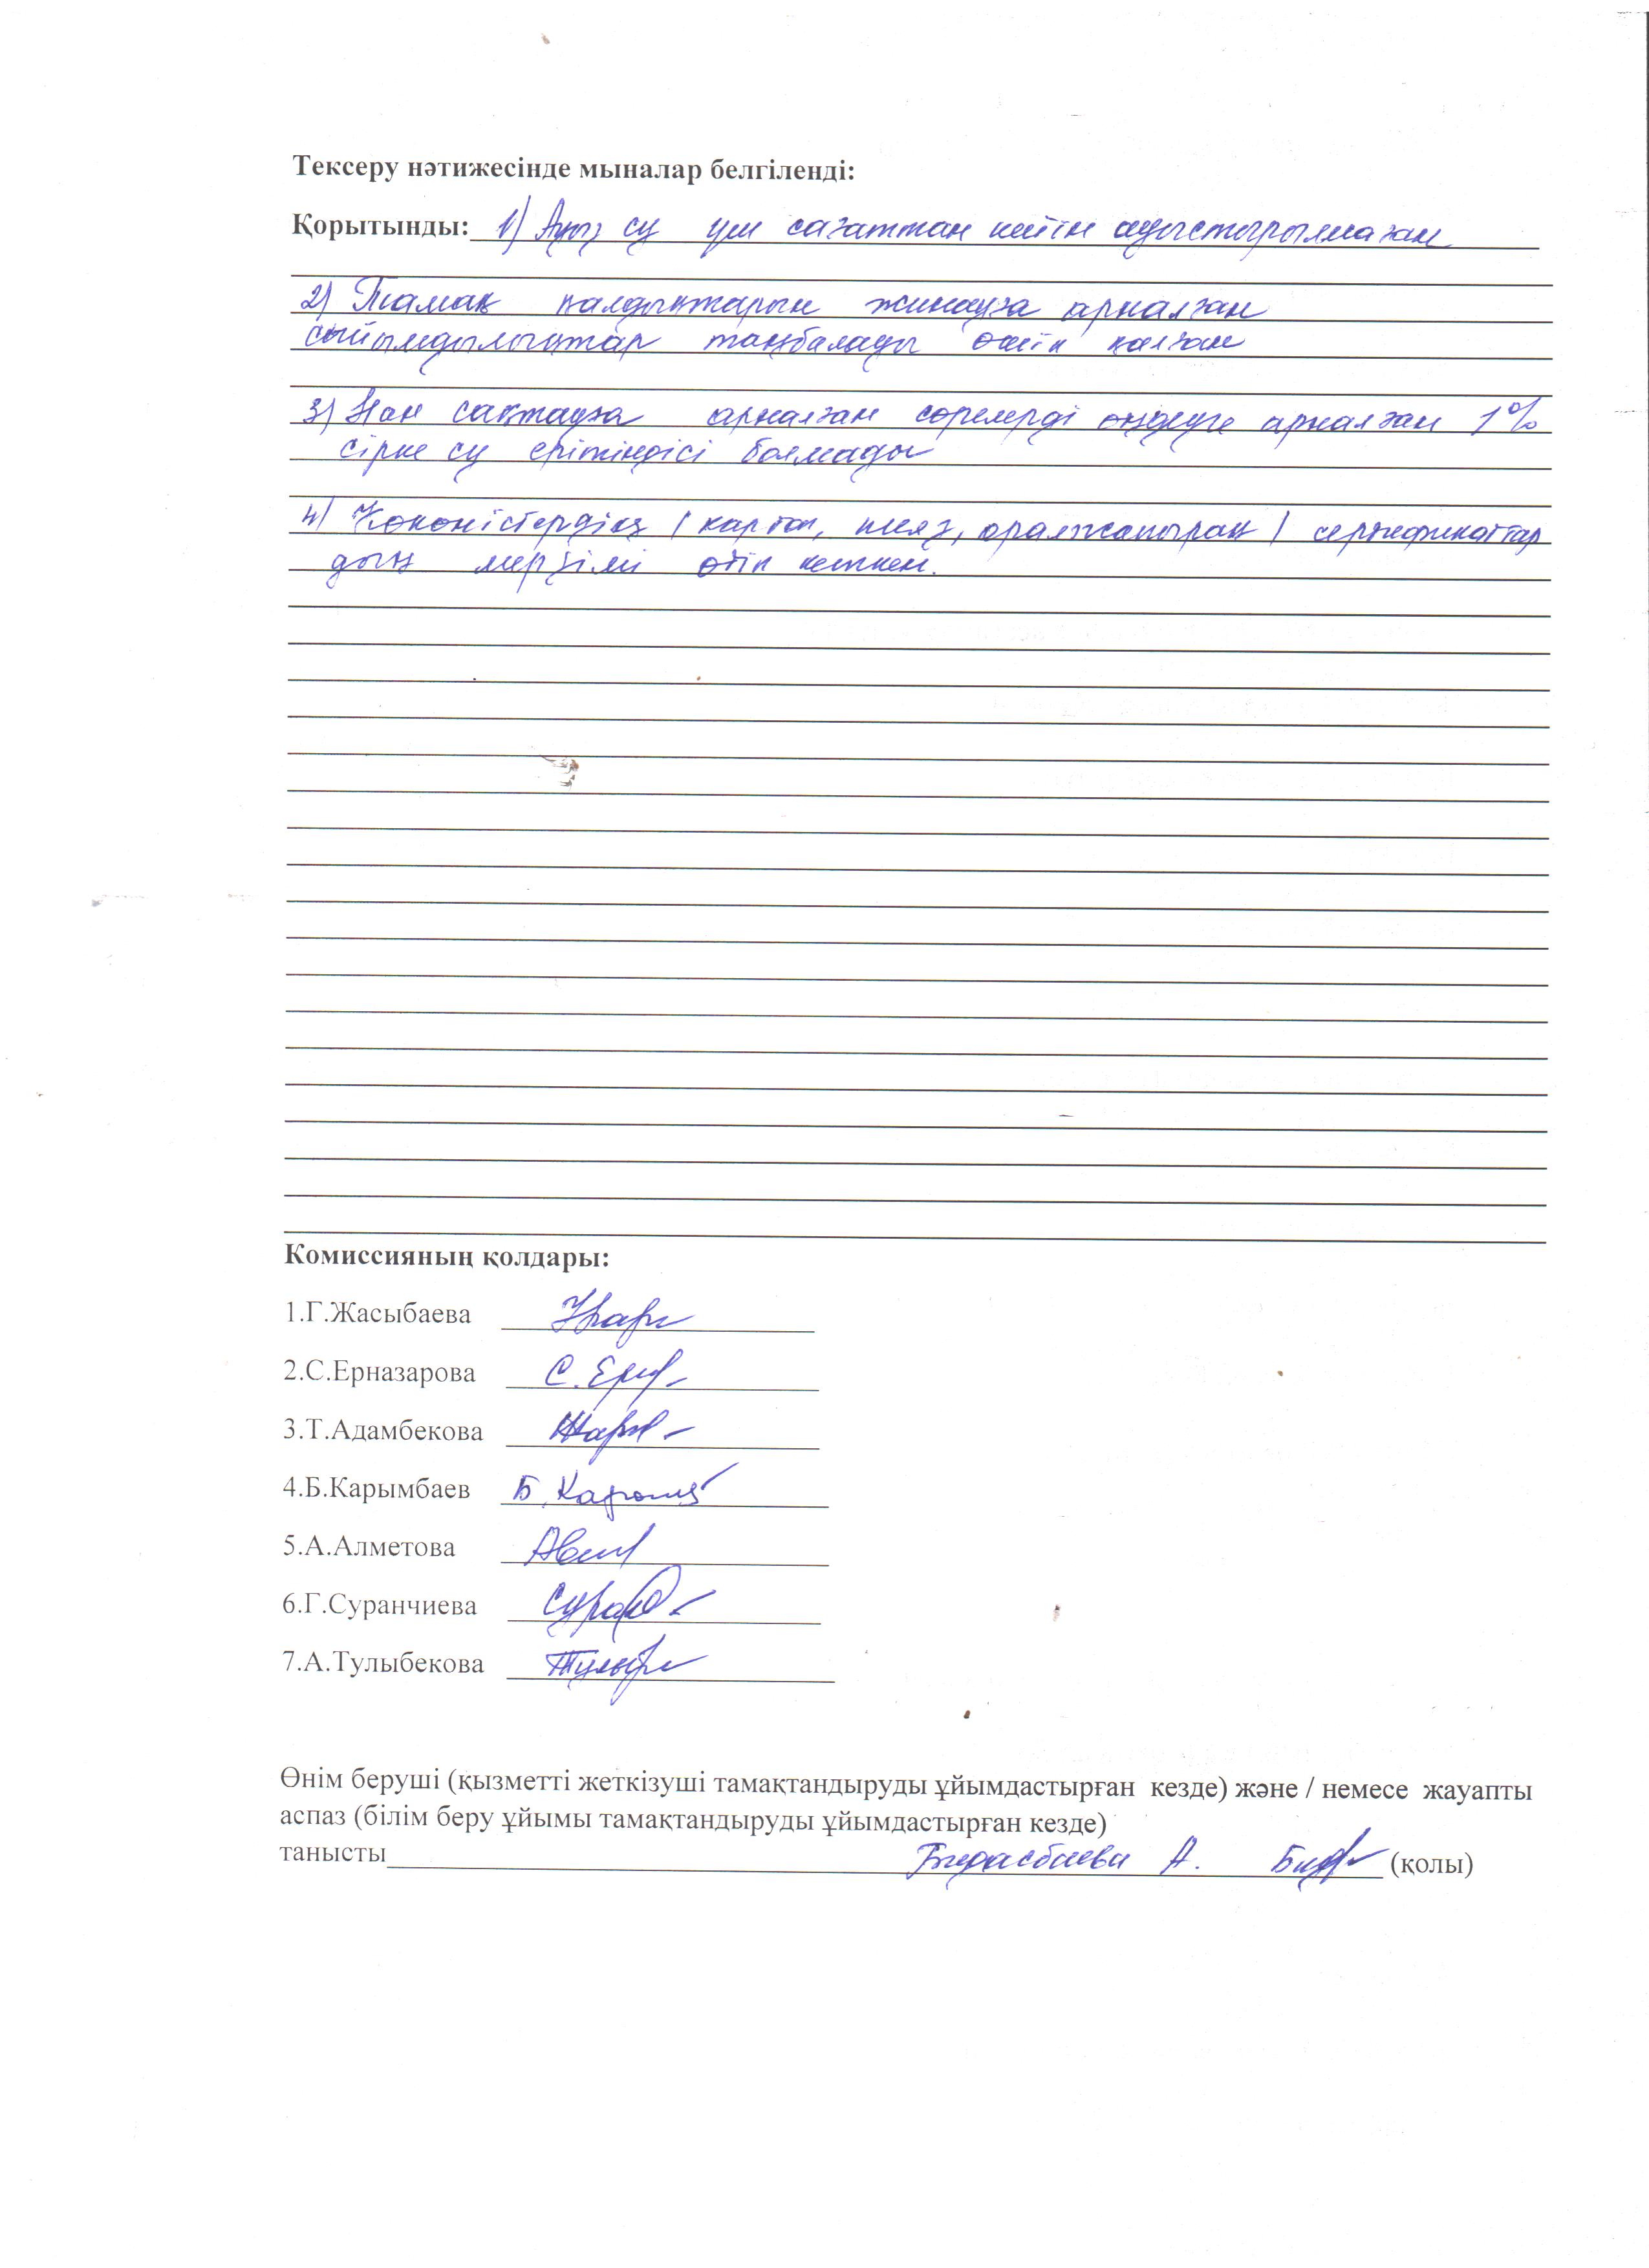 Тексеру нәтижесінде мыналар белгіленді:
Қорытынды: 1) Ауыз су үш сағаттан кейін ауыстырылмаған
2) Тамақ қалдықтарын жинауға арналған
сыйымдылықтар таңбалады өшіп қалған
3) Нан сақтауға арналған сөрелерді өңдеуге арналған 1%
сірке су ерітіндісі болмады
4) Көкөністердің / картоп, пияз, орамжапырақ / сертификаттар
дың мерзімі өтіп кеткен.
Комиссияның қолдары:
1.Г.Жасыбаева
2.С.Ерназарова С. Ерн
3.Т.Адамбекова
4.Б.Карымбаев Б. Карымб
5.А.Алметова
6.Г.Суранчиева Суран
7.А.Тулыбекова Тулыб
Өнім беруші (қызметті жеткізуші тамақтандыруды ұйымдастырған кезде) және / немесе жауапты
аспаз (білім беру ұйымы тамақтандыруды ұйымдастырған кезде)
танысты А. (қолы)